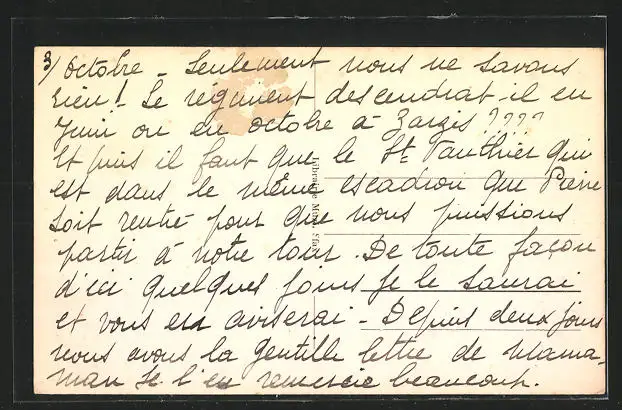 3/ Octobre - Seulement nous ne savons
rien! Le regiment descendrat-il en
Juin ou en octobre à Zarzis ????
Et puis il faut que le Lt Vauthier qui
est dans le même escadron que Pierre
soit rentré pour que nous puissions
partir à notre tour. De toute façon
d'ici quelques jours je le saurai
et vous en aviserai - Depuis deux jours
nous avons la gentille lettre de Mama-
man Je l'en remercie beaucoup.
Librairie